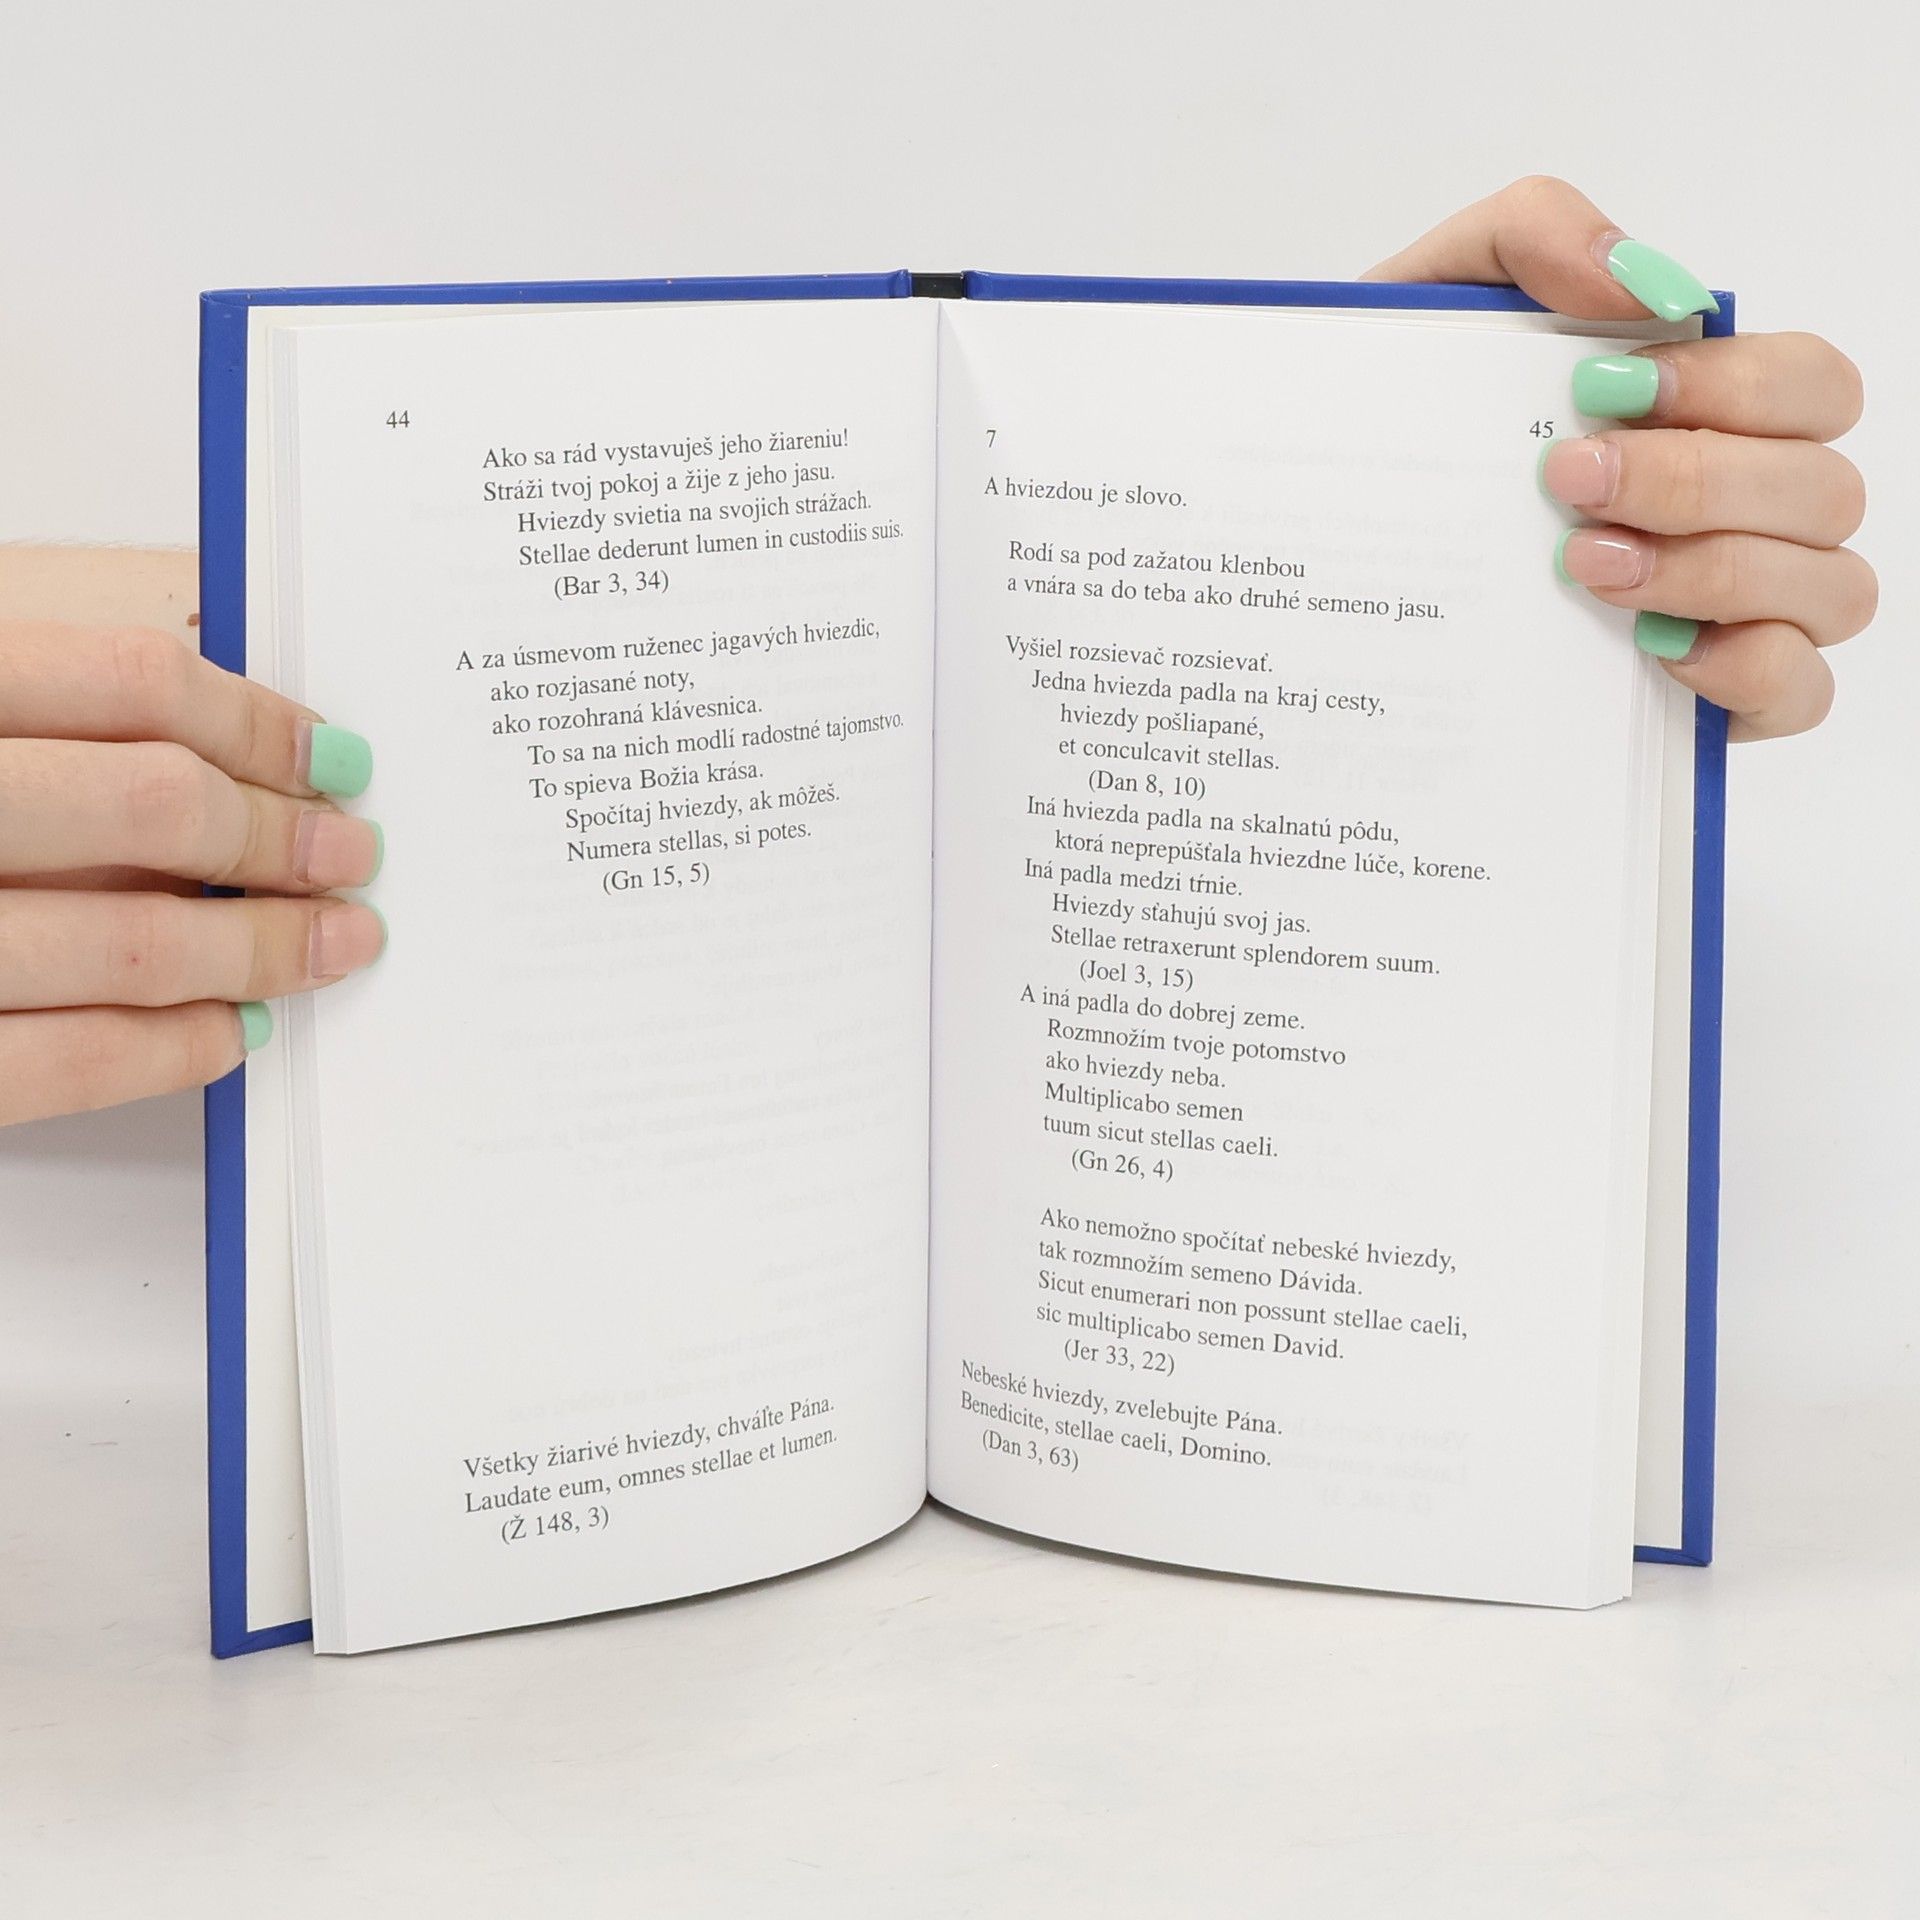 44
Ako sa rád vystavuješ jeho žiareniu!
Stráži tvoj pokoj a žije z jeho jasu.
Hviezdy svietia na svojich strážach.
Stellae dederunt lumen in custodiis suis.
(Bar 3, 34)
A za úsmevom ruženec jagavých hviezdic,
ako rozjasané noty,
ako rozohraná klávesnica.
To sa na nich modlí radostné tajomstvo.
To spieva Božia krása.
Spočítaj hviezdy, ak môžeš.
Numera stellas, si potes.
(Gn 15, 5)
Všetky žiarivé hviezdy, chváľte Pána.
Laudate eum, omnes stellae et lumen.
(Ž 148, 3)
45
7
A hviezdou je slovo.
Rodí sa pod zažatou klenbou
a vnára sa do teba ako druhé semeno jasu.
Vyšiel rozsievač rozsievať.
Jedna hviezda padla na kraj cesty,
hviezdy pošliapané,
et conculcavit stellas.
(Dan 8, 10)
Iná hviezda padla na skalnatú pôdu,
ktorá neprepúšťala hviezdne lúče, korene.
Iná padla medzi tŕnie.
Hviezdy sťahujú svoj jas.
Stellae retraxerunt splendorem suum.
(Joel 3, 15)
A iná padla do dobrej zeme.
Rozmnožím tvoje potomstvo
ako hviezdy neba.
Multiplicabo semen
tuum sicut stellas caeli.
(Gn 26, 4)
Ako nemožno spočítať nebeské hviezdy,
tak rozmnožím semeno Dávida.
Sicut enumerari non possunt stellae caeli,
sic multiplicabo semen David.
(Jer 33, 22)
Nebeské hviezdy, zvelebujte Pána.
Benedicite, stellae caeli, Domino.
(Dan 3, 63)